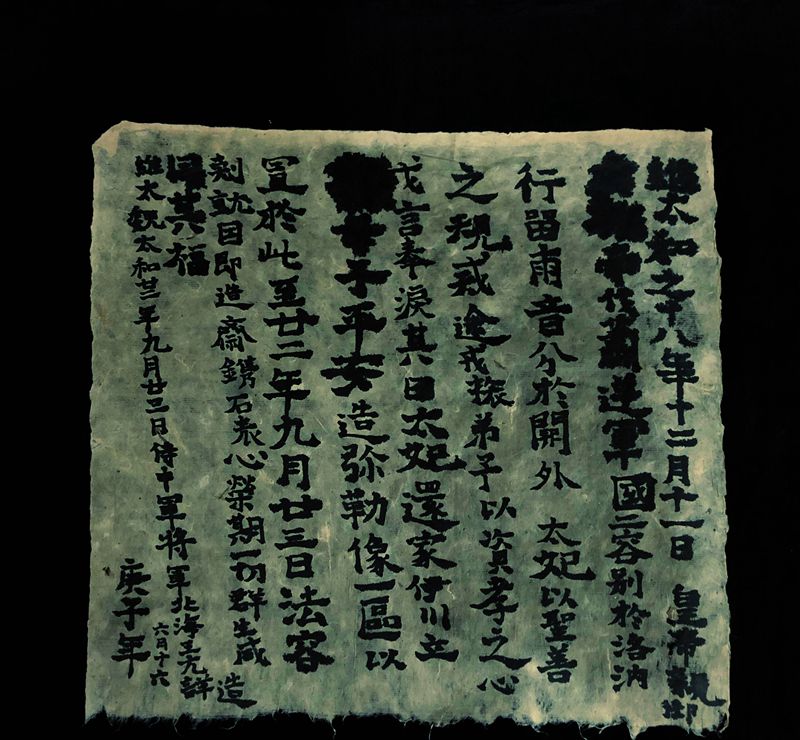 維太和之十八年十二月十一日 皇帝親御
帝伐蕭逆軍國二容別於洛汭
行留兩音分於開外 太妃以聖善
之規戒途戎 弟子以資孝之心
戈言奉淚其日太妃還家伊川立
母子平安造弥勒像一區以
置於此至廿二年九月廿三日法容
刻就因即造齋鐫石表心榮期一切群生咸
同其福 造
維太魏太和廿二年九月廿三日侍中軍将軍北海王元詳
庚子年 六月十六